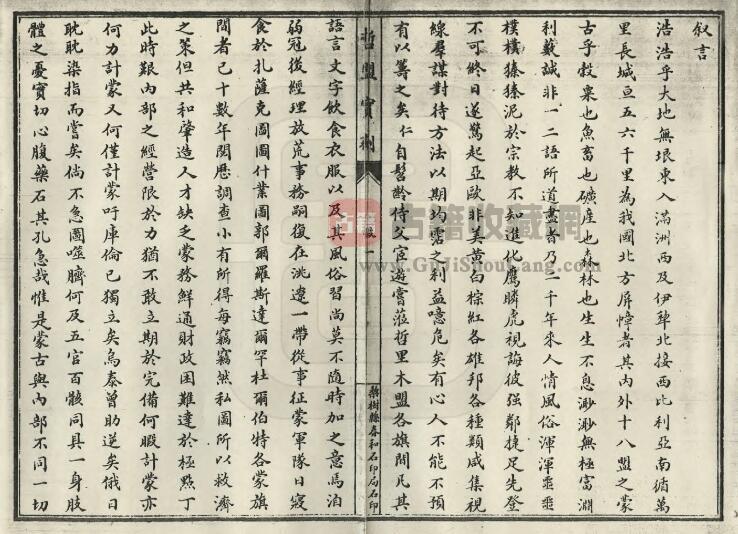 叙言
浩浩乎大地無垠東入滿洲西及伊犁北接西比利亞南循萬
里長城亘五六千里為我國北方屏幛者其內外十八盟之蒙
古乎穀粟也魚畜也礦產也森林也生生不息渺渺無極富淵
利藪誠非一二語所道盡者乃二千年來人情風俗渾渾噩噩
樸樸獉獉泥於宗教不知進化鷹瞵虎視誨彼强鄰捷足先登
不可終日遂驚起亞歐非美黃白棕紅各雄邦各種類咸集視
線羣謀對待方法以期均霑之利益噫危矣有心人不能不預
有以籌之矣仁自髫齡侍父宦遊嘗蒞哲里木盟各旗間凡其
哲盟實劑
叙
一
梨樹縣春和石印局石印
語言文字飲食衣服以及其風俗習尚莫不隨時加之意焉洎
弱冠後經理放荒事務嗣復在洮遼一帶從事征蒙軍隊日寢
食於扎薩克圖圖什業圖郭爾羅斯達爾罕杜爾伯特各蒙旗
間者已十數年閱歷調查小有所得每竊竊然私圖所以救濟
之策但共和肇造人才缺乏蒙務鮮通財政困難達於極點丁
此時艱內部之經營限於力猶不敢立期於完備何暇計蒙亦
何力計蒙又何僅計蒙吁庫倫已獨立矣烏泰曾助逆矣俄日
眈眈染指而嘗矣倘不急圖噬臍何及五官百骸同具一身肢
體之憂實切心腹藥石其孔急哉惟是蒙古與內部不同一切
古籍
古籍收藏網
www.GuJiShouCang.com